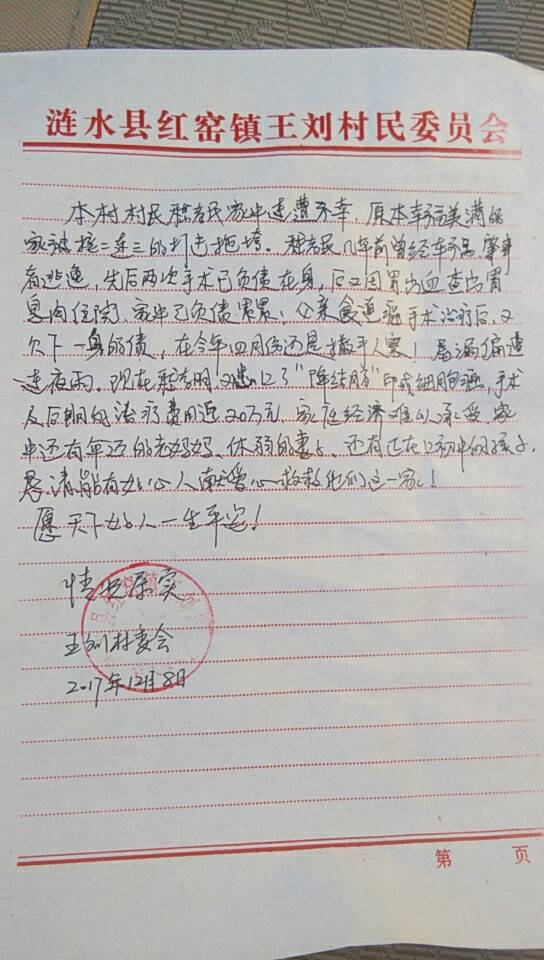 涟水县红窑镇王刘村民委员会
本村村民 家中连遭不幸，原本幸福美满的
家被接二连三的打击拖垮。 几年前曾经车祸，肇事
者逃逸，先后两次手术已负债在身，后又因胃出血查出胃
息肉住院，家中已负债累累；父亲食道癌手术治疗后，又
欠下一身的债，在今年四月份还是撒手人寰！屋漏偏遭
连夜雨，现在 又患上了“降结肠”印戒细胞癌，手术
及后期的治疗费用近20万元，家庭经济难以承受，家
中还有年迈的老妈妈、体弱的妻子、还有正在上初中的孩子，
恳请能有好心人献爱心救救他们这一家！
愿天下好人一生平安！
情况属实
王刘村委会
2017年12月8日
第 页